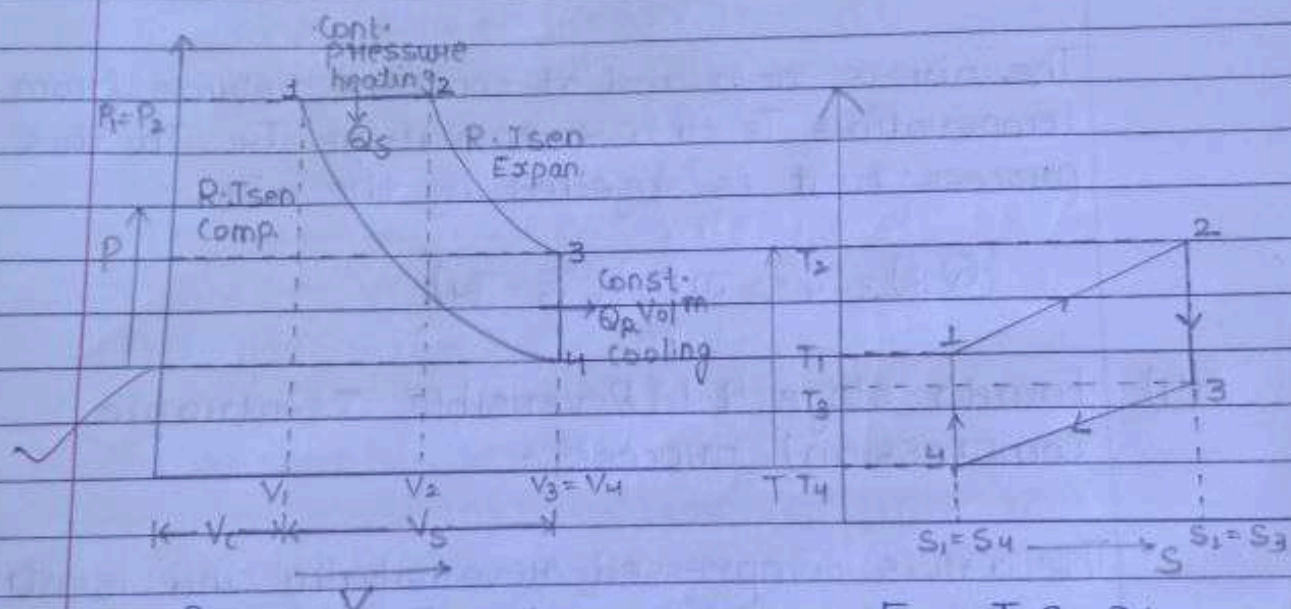 Cont.
pressure
heating
1
2
P₁=P₂
Qs
R.Isen
Expan.
R.Isen
Comp.
P
3
Const.
QR Volm
cooling
4
V₁
V₂
V₃=V₄
Vc
Vs
V
T₂
2
1
T₁
T₃
3
4
T
T₄
S₁=S₄
S
S₂=S₃